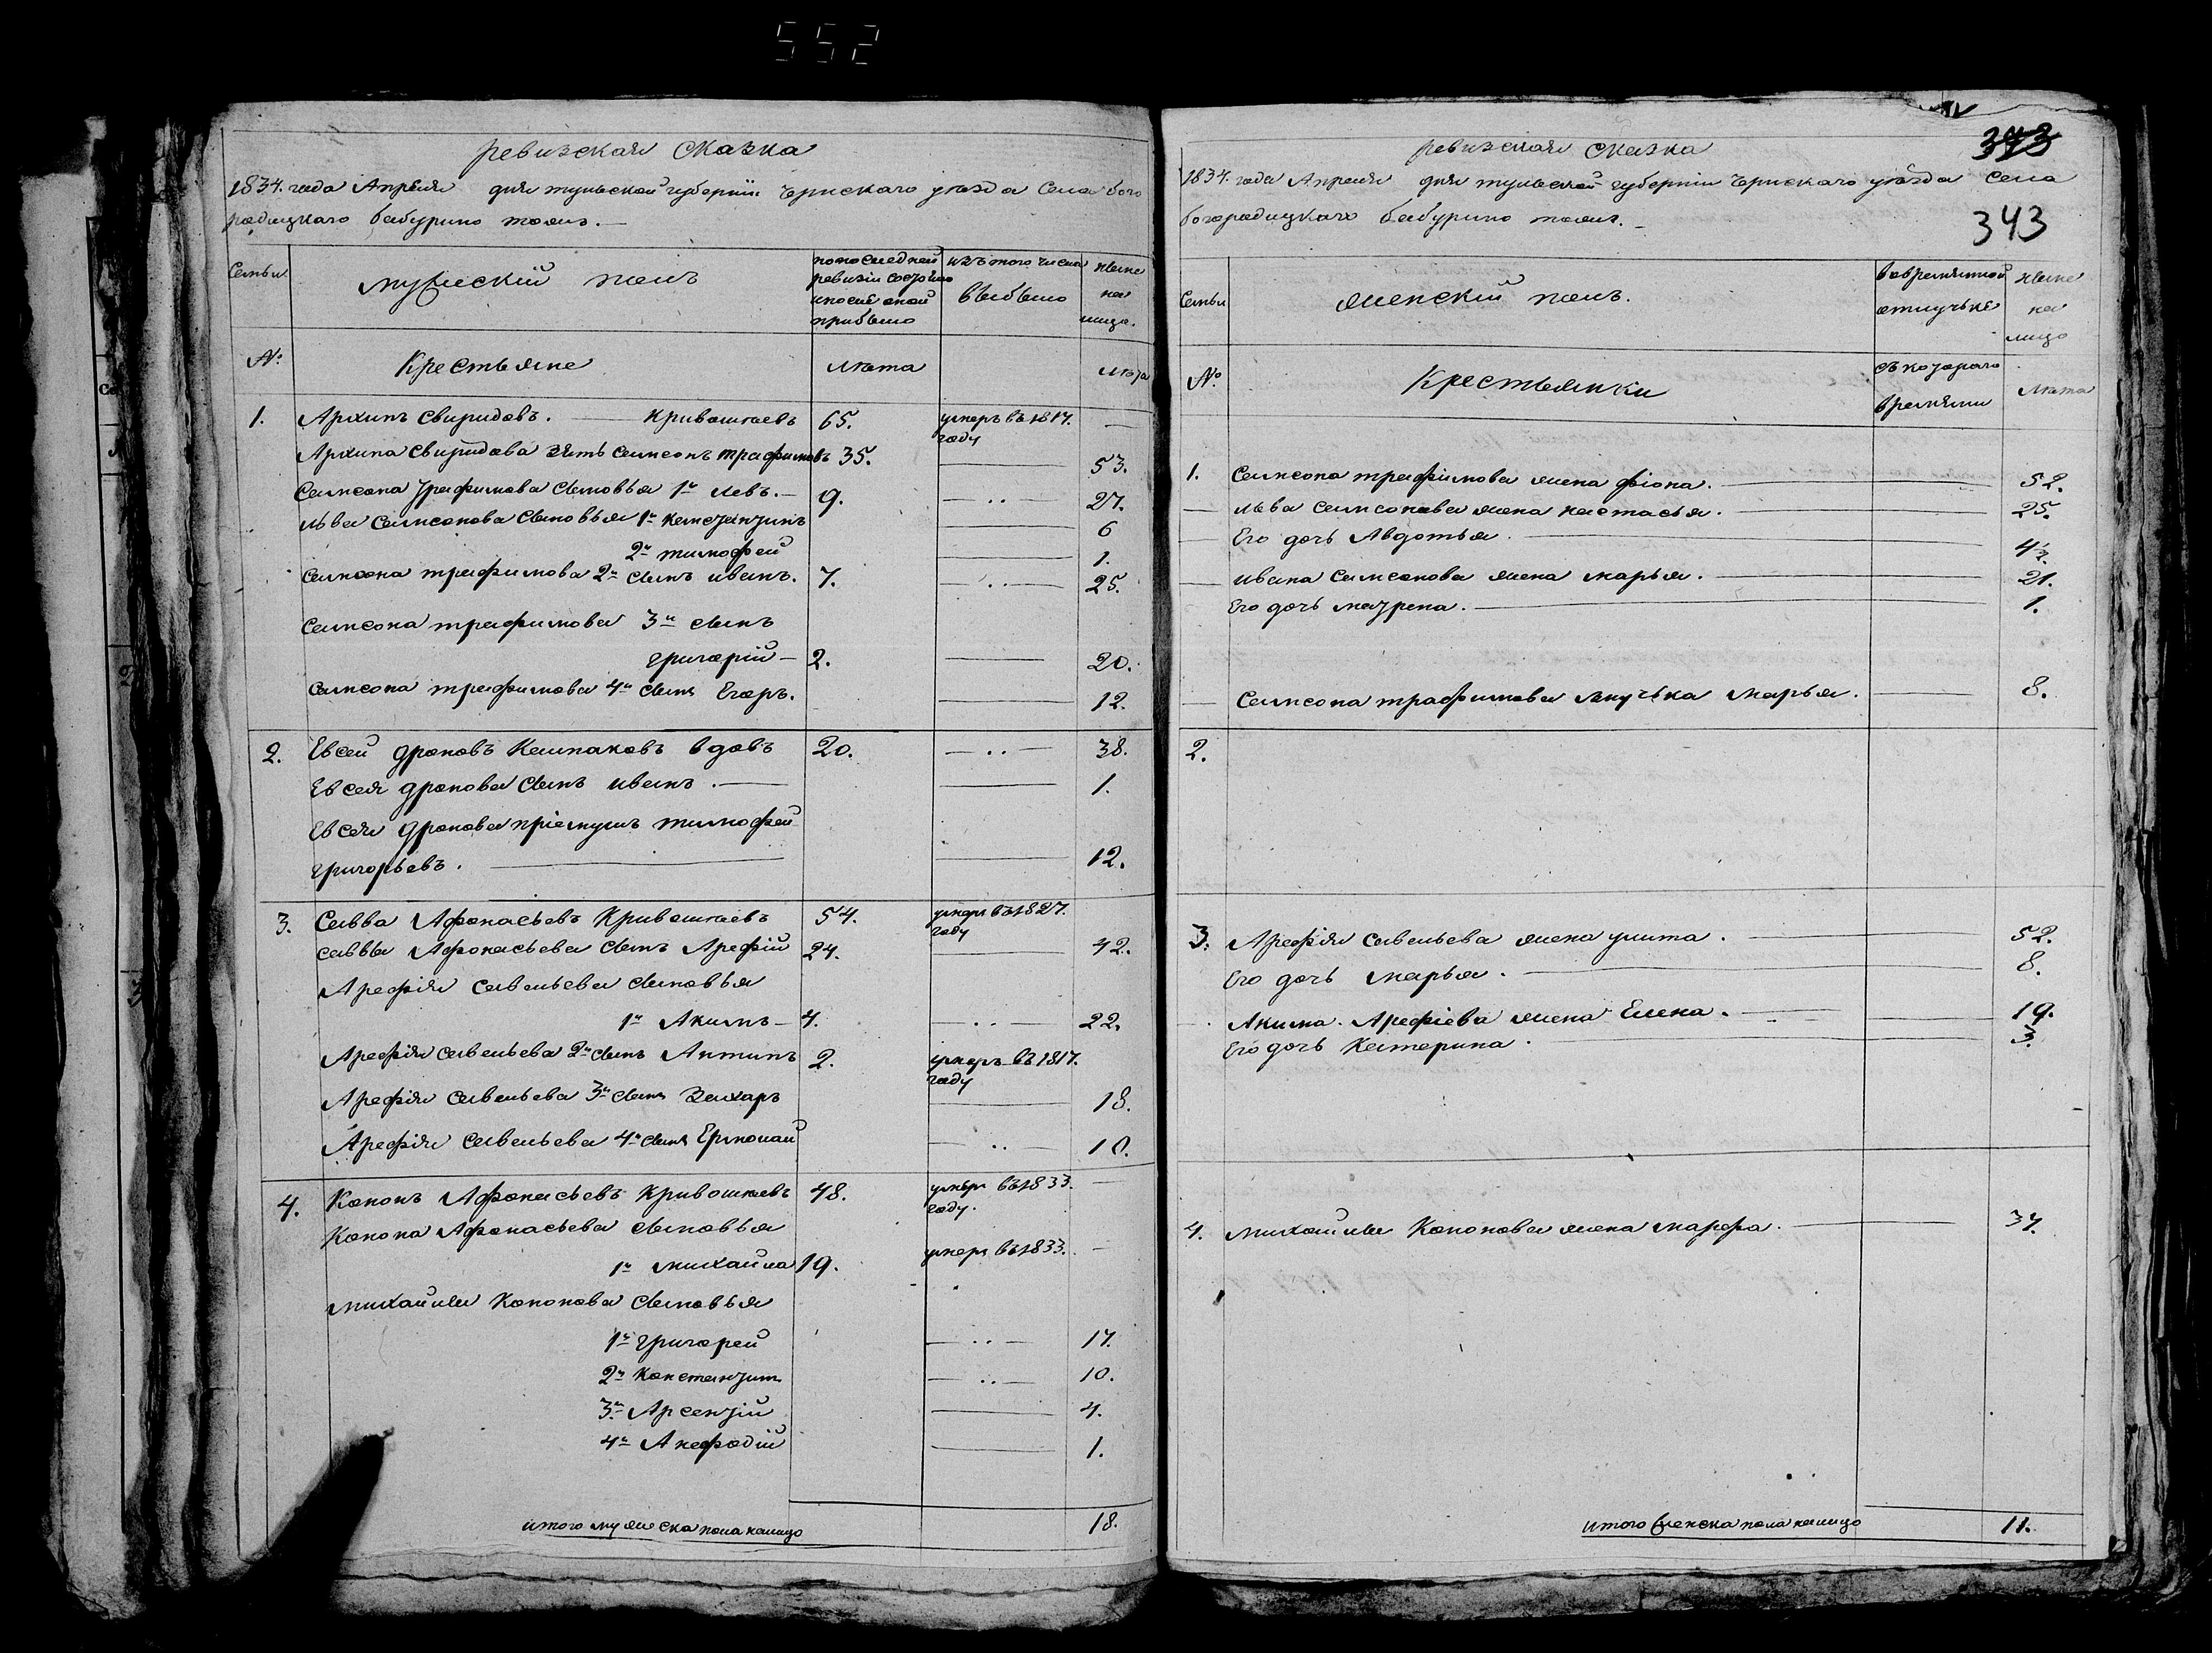 552
ревизская сказка
1834. года Апреля дня тульской губернiи Чернскаго уезда Села бого
родицкаго бабурино тожъ. —
Семьи
мужескiй полъ
по последней ревизiи состояло и после оной прибыло
изъ того числа выбыло
ныне на лицо.
№
Крестьяне
лета
лета
1. Архипъ Свиридовъ. — Кривошеевъ 65. умеръ въ 1817. году —
Архипа Свиридова зять Самсонъ трафимовъ 35. — 53.
Самсона трафимова сыновья 1й левъ. — 9. — 27.
льва Самсонова сыновья 1й Канстантинъ 6
2й тимофей — 1.
Самсона трафимова 2й сынъ иванъ. 7. — 25.
Самсона трафимова 3й сынъ
григорiй — 2. — 20.
Самсона трафимова 4й сынъ Егоръ. — 12.
2. Евсей дроновъ Калпаковъ вдовъ 20. — 38.
Евсея дронова сынъ иванъ. — 1.
Евсея дронова прiемушъ тимофей
григорьевъ. — 12.
3. Савва Афонасьевъ Кривошеевъ 54. умеръ въ 1827. году
саввы Афонасьева сынъ Арефiй 24. — 42.
Арефiя савельева сыновья
1й Акимъ — 4. — 22.
Арефiя савельева 2й сынъ Антипъ 2. умеръ въ 1817. году
Арефiя савельева 3й сынъ Захаръ — 18.
Арефiя савельева 4й сынъ Ермолай — 10.
4. Кононъ Афонасьевъ Кривошеевъ 48. умеръ въ 1833. году. —
Конона Афонасьева сыновья
1й михайла 19. умеръ въ 1833. —
михайлы Кононова сыновья
1й григорей — 17.
2й Константинъ — 10.
3й Арсентiй — 4.
4й Анефодiй — 1.
итого мужеска пола налицо 18.
ревизская сказка
343
1834. года Апреля дня тульской губернiи Чернскаго уезда Села
богородицкаго бабурино тожъ. —
343
Семьи
женскiй полъ.
вовременной отлучьке
ныне на лицо
№
Крестьянки
съ котораго времяни
лета
1. Самсона трафимова жена фiона. — 52.
льва Самсонова жена настасья. — 25.
Его дочь Авдотья. — 4½.
ивана Самсонова жена марья. — 21.
Его дочь матрена. — 1.
Самсона трафимова внучька марья. — 8.
2.
3. Арефiя савельева жена улита. — 52.
Его дочь марья. — 8.
Акима. Арефiева жена Елена. — 19.
Его дочь Катерина. — 3.
4. михайлы Кононова жена марфа. — 37.
итого женска пола налицо 11.